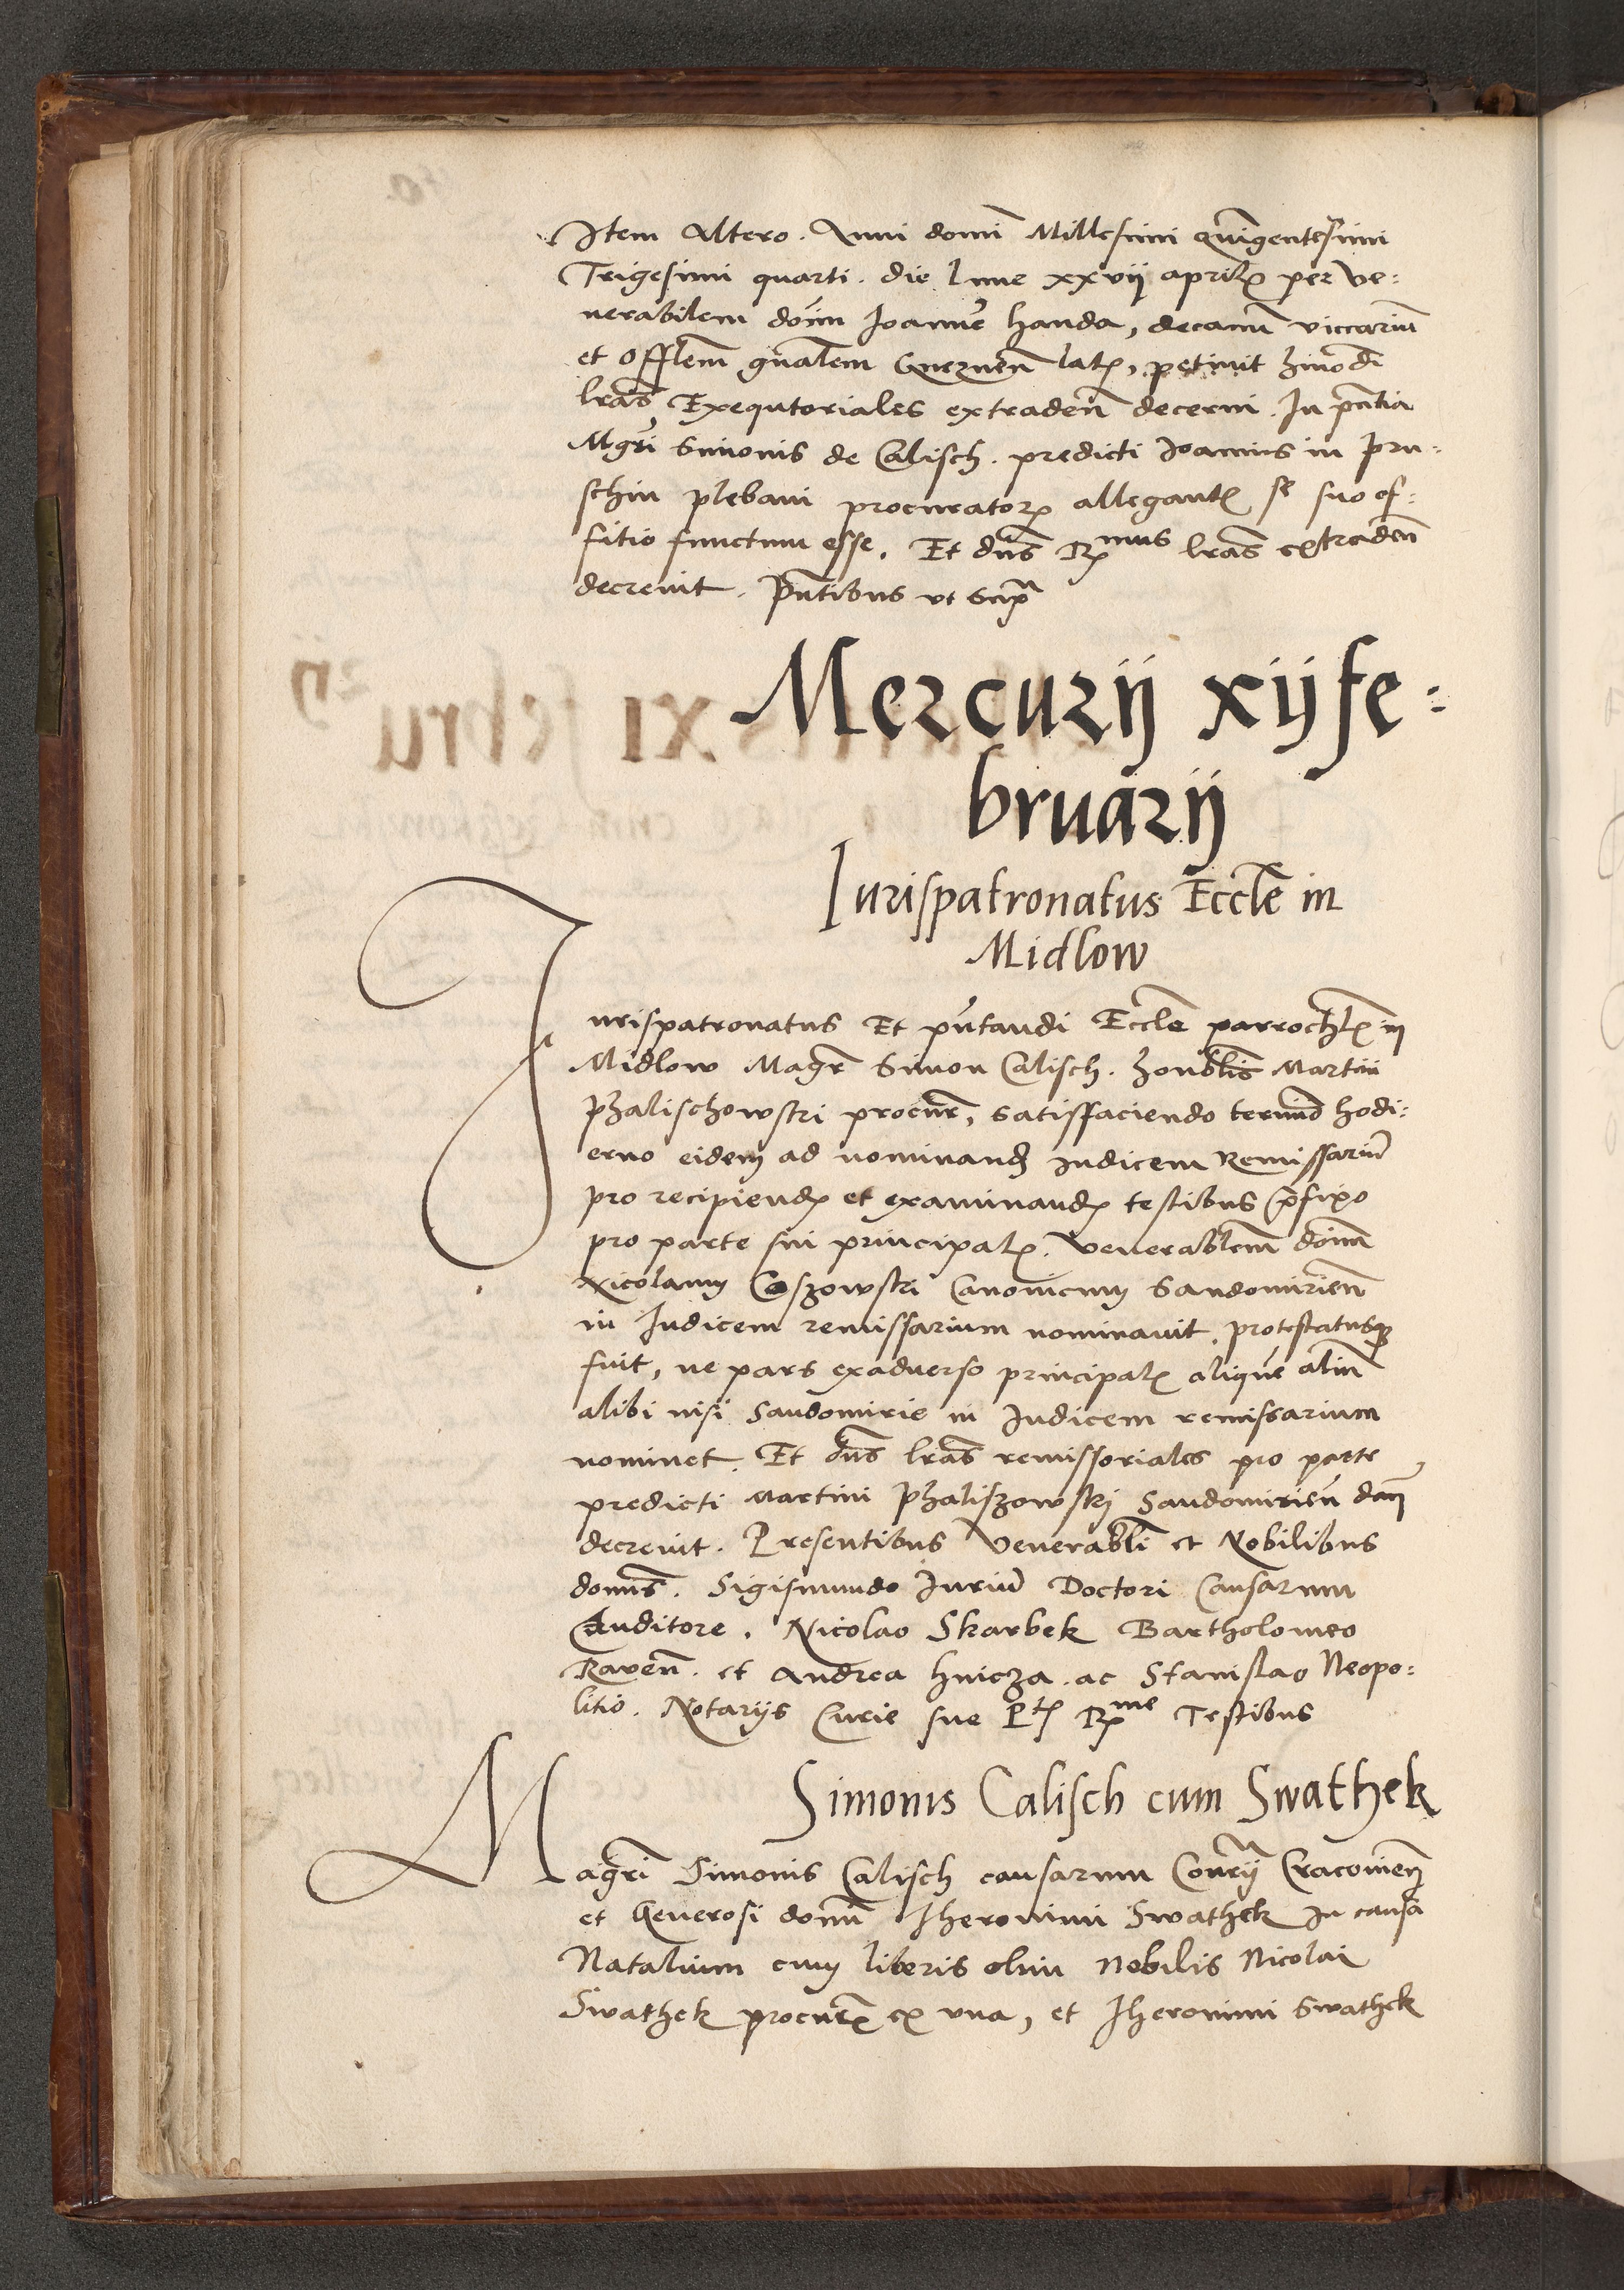 Item Altero. Anni domī Millesimi Qui̅gentesimi
Trigesimi quarti. die lune xxvij aprilꝭ per Ve:
nerabilem doīm Joanne̅ handa, decanu̅ viccariu̅
et Offle̅m gn̅alem Gneznen̅ latꝭ, petiuit hmo̅di
lr̅as Exequtoriales extraden̅ decerni. In pn̅tia
Mgr̅i Simonis de Calisch. predicti Joannis in Pru:
schin plebani procuratorꝭ allegantꝭ se suo of:
fitio functum esse. Et dn̅s Rꝭmus lr̅as extraden̅
decreuit. Pn̅tibus vt Supra
Mercurij xij fe:
bruarij
Jurispatronatus Eccle̅ in
Midlow
Jurispatronatus Et pn̅tandi Eccle̅ parrochlꝭ in
Midlow Magr̅ Simon Calisch. honblis Martini
Phalischowski procur̅, satisfaciendo termi̅o hodi:
erno eidem ad nominand̅ Judicem Remissariu̅
pro recipiendꝭ et examinandꝭ testibus p̅fixo
pro parte sui principalꝭ. Venerable̅m doīm
Nicolaum Coszowski Canonicum Sandomirien̅
in Judicem remissarium nominauit. protestatusqꝫ
fuit, ne pars exaduerso principalꝭ alique̅ aliu̅
alibi nisi Sandomirie in Judicem remissarium
nominet. Et dn̅s lr̅as remissoriales pro parte
predicti Martini Phaliszowskj Sandomirien̅ dan̅
decreuit. Presentibus Venerabli̅ et Nobilibus
domn̅s. Sigismundo Juriu̅ Doctori Causarum
Auditore. Nicolao Skarbek Bartholomeo
Raven̅. et Andrea hnicza. ac Stanislao Neopo:
litio. Notarijs Curie sue Ptꝭ Rꝭme Testibus
Simonis Calisch cum Swathek
Magr̅i Simonis Calisch causarum Con̅rij Cracouien̅
et Generosi domn̅ Jheronimi Swathek In causa
Natalium cum liberis olim Nobilis Nicolai
Swathek procur̅ꝭ ex vna, et Jheronimi Swathek